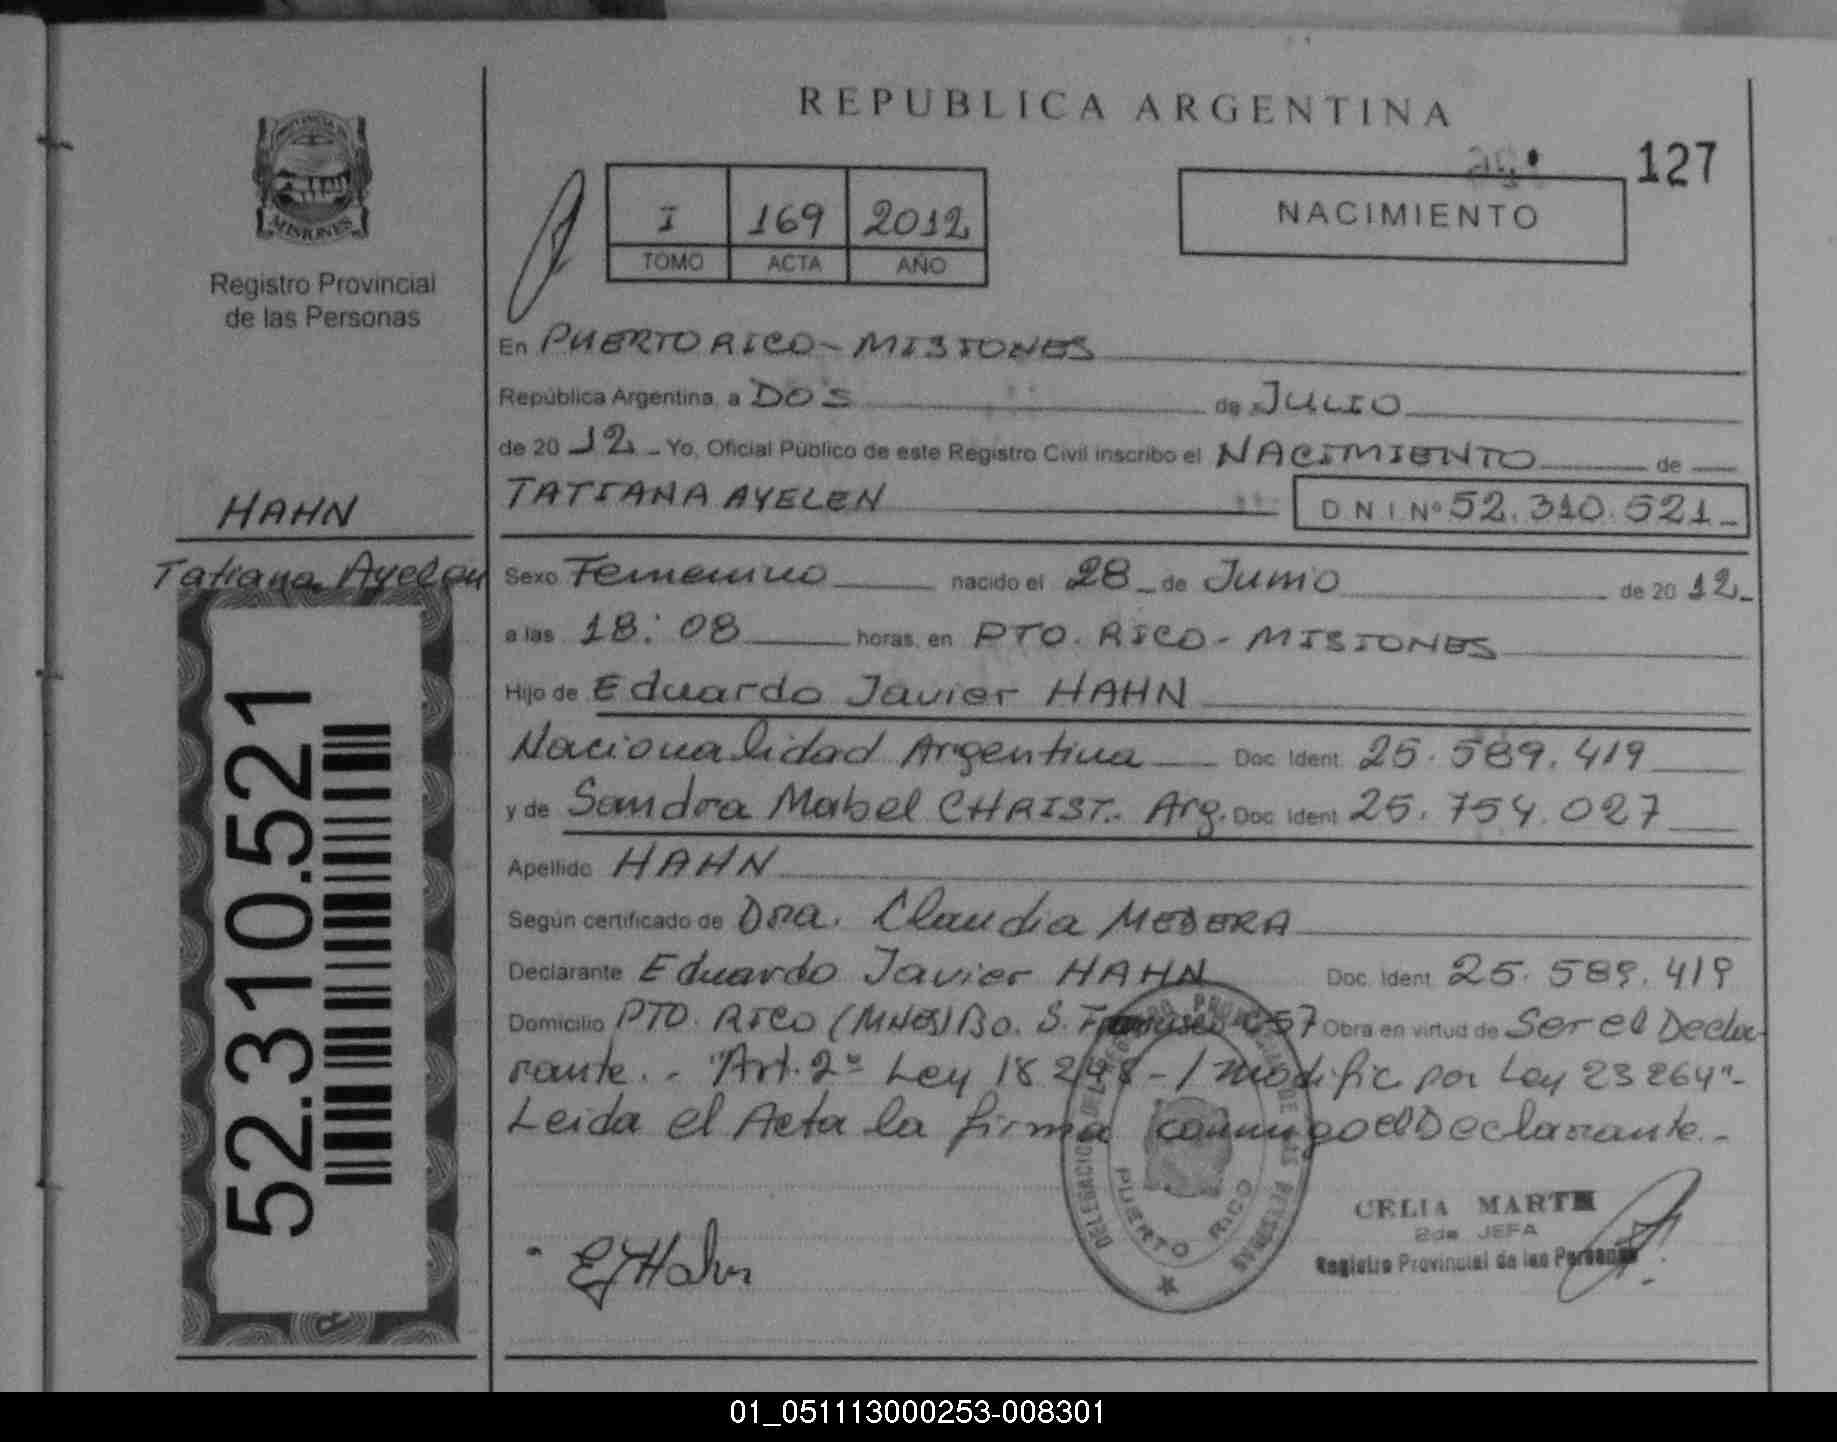 REPUBLICA ARGENTINA
127
PROVINCIA DE
MISIONES
Registro Provincial
de las Personas
I 169 2012
TOMO ACTA AÑO
NACIMIENTO
En PUERTO RICO - MISIONES
República Argentina, a DOS de JULIO
de 20 12 - Yo, Oficial Público de este Registro Civil inscribo el NACIMIENTO de
HAHN
TATIANA AYELEN
D N I Nº 52.310.521
Tatiana Ayelen
Sexo Femenino nacido el 28 - de Junio de 20 12.
a las 18:08 horas, en PTO. RICO - MISIONES
Hijo de Eduardo Javier HAHN
Nacionalidad Argentina Doc. Ident. 25.589.419
y de Sandra Mabel CHRIST.. Arg. Doc. Ident. 25.754.027
Apellido HAHN
Según certificado de Dra. Claudia MEDERA
Declarante Eduardo Javier HAHN Doc. Ident. 25.589.419
Domicilio PTO. RICO (MNES) Bo. S. Francisco C57 Obra en virtud de Ser el Decla-
rante. - "Art. 2º Ley 18 248 - / modific por Ley 23 264" -
Leida el Acta la firma conmigo el Declarante. -
52.310.521
PUERTO RICO
EJHahn
CELIA MARTE
2da JEFA
Registro Provincial de las Personas
01_051113000253-008301